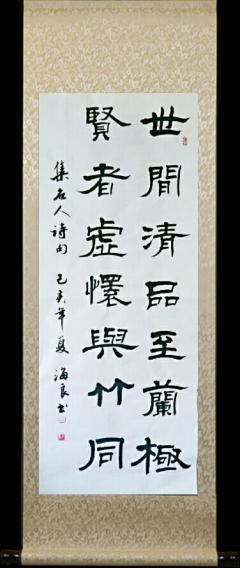 世間清品至蘭極
賢者虛懷與竹同
集名人詩句 己亥年夏 海良書